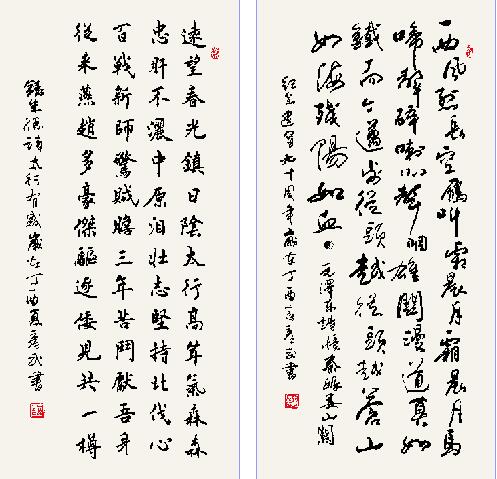 西風烈長空雁叫霜晨月霜晨月馬
啼聲碎喇叭聲咽雄關漫道真如
鐵而今邁步從頭越從頭越蒼山
如海殘陽如血
毛澤東詩憶秦娥婁山關
紀念建軍九十周年歲在丁酉夏武書
遠望春光鎮日陰太行高聳氣森森
忠肝不灑中原泪壯志堅持北伐心
百戰新師驚賊膽三年苦鬥獻吾身
從来燕趙多豪傑驅逐倭児共一樽
錄朱德詩太行有感歲在丁酉夏武書